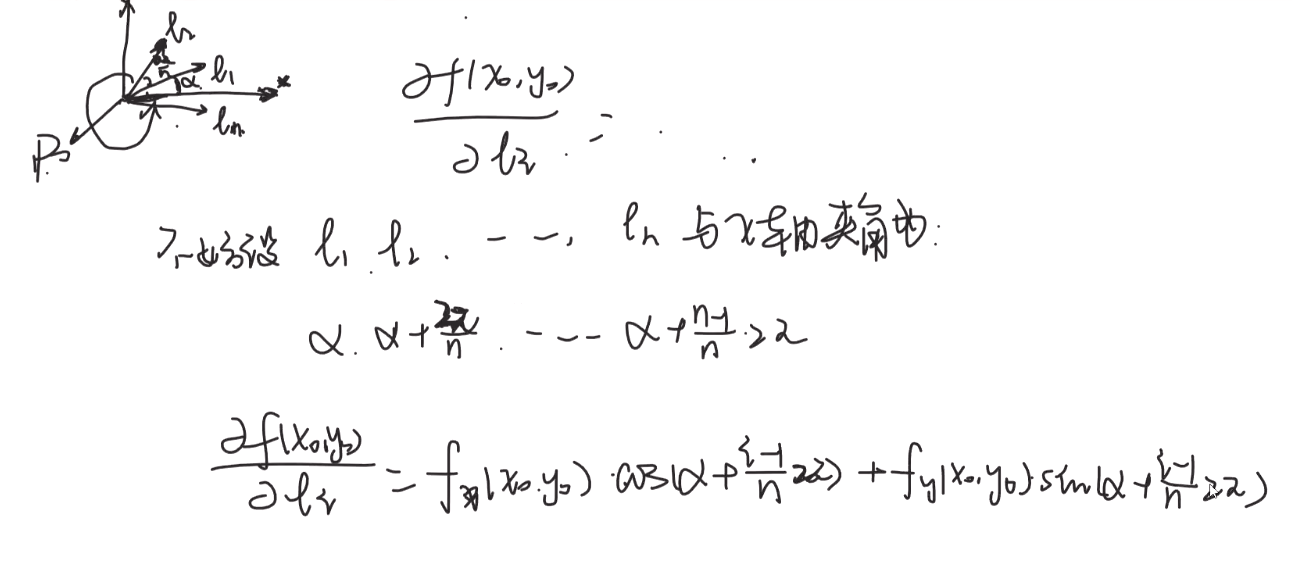 l₂
2π/n
α l₁ x
lₙ
P₀
∂f(x₀,y₀)/∂lᵢ =
不妨设 l₁ l₂ . ---, lₙ 与x轴的夹角为:
α. α+2π/n . --- α+(n-1)/n·2π
∂f(x₀,y₀)/∂lᵢ = fₓ(x₀,y₀)·cos(α+(i-1)/n 2π) + f_y(x₀,y₀)·sin(α+(i-1)/n 2π)